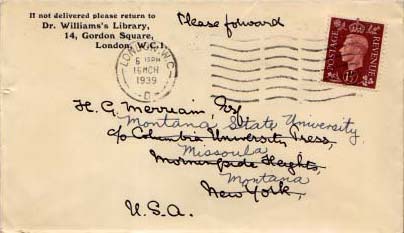 If not delivered please return to
Dr. Williams's Library,
14, Gordon Square,
London, W.C.1.
Please forward
LONDON. W.C.
6 15PM
16 MCH
1939
- D -
POSTAGE
REVENUE
1½
H. G. Merriam, Esq
Montana State University,
c/o Columbia University Press,
Missoula
Morningside Heights,
Montana
New York,
U.S.A.